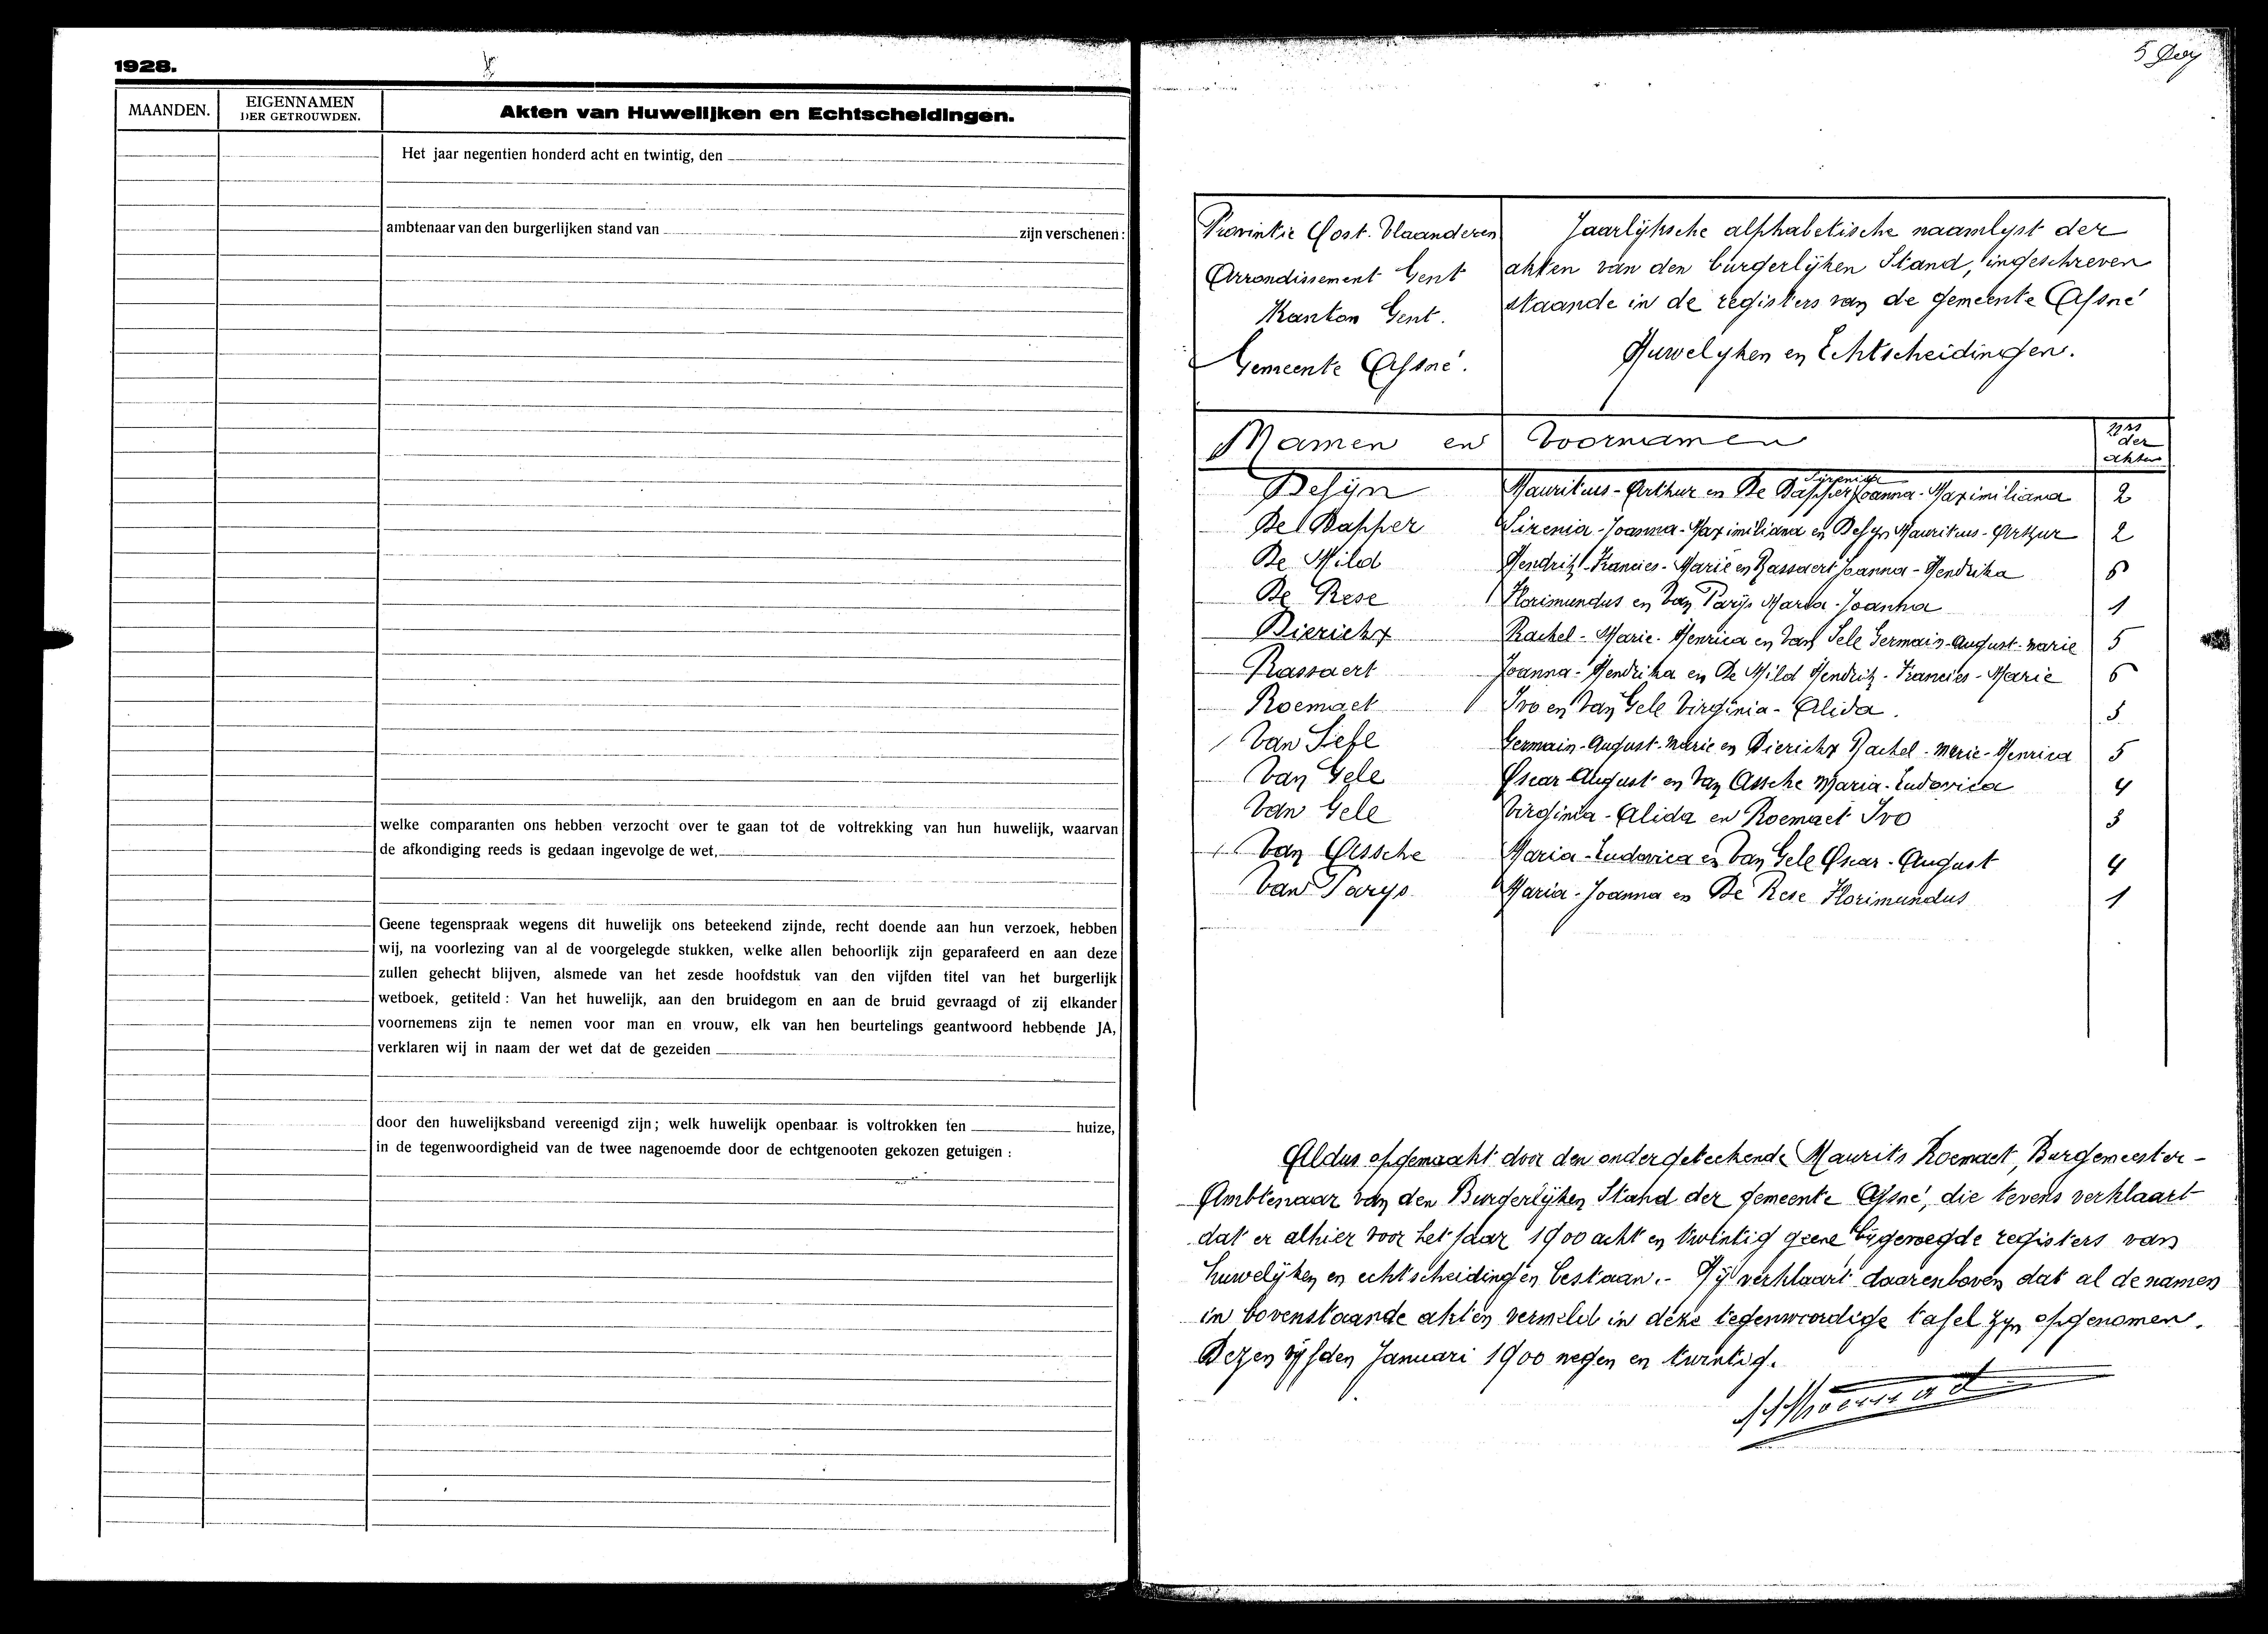 1928.
MAANDEN.
EIGENNAMEN
DER GETROUWDEN.
Akten van Huwelijken en Echtscheidingen.
Het jaar negentien honderd acht en twintig, den
ambtenaar van den burgerlijken stand van zijn verschenen:
welke comparanten ons hebben verzocht over te gaan tot de voltrekking van hun huwelijk, waarvan
de afkondiging reeds is gedaan ingevolge de wet.
Geene tegenspraak wegens dit huwelijk ons beteekend zijnde, recht doende aan hun verzoek, hebben
wij, na voorlezing van al de voorgelegde stukken, welke allen behoorlijk zijn geparafeerd en aan deze
zullen gehecht blijven, alsmede van het zesde hoofdstuk van den vijfden titel van het burgerlijk
wetboek, getiteld: Van het huwelijk, aan den bruidegom en aan de bruid gevraagd of zij elkander
voornemens zijn te nemen voor man en vrouw, elk van hen beurtelings geantwoord hebbende JA,
verklaren wij in naam der wet dat de gezeiden
door den huwelijksband vereenigd zijn; welk huwelijk openbaar is voltrokken ten huize,
in de tegenwoordigheid van de twee nagenoemde door de echtgenooten gekozen getuigen:
5
Provintie Oost-Vlaanderen
Arrondissement Gent
Kanton Gent.
Gemeente Afsné.
Jaarlijksche alphabetische naamlyst der
akten van den burgerlijken Stand, ingeschreven
staande in de registers van de gemeente Afsné
Huwelyken en Echtscheidingen.
Namen en Voornamen
Nrs der akten
Defyn Mauritius-Arthur en De Dapper Sirenia Joanna-Maximiliana 2
De Dapper Sirenia-Joanna-Maximiliana en Defyn Mauritius-Arthur 2
De Mild Hendrik-Francies-Marie en Rassaert Joanna-Hendrika 6
De Rese Florimundus en Van Parijs Maria-Joanna 1
Dierickx Rachel-Marie-Henrica en Van Sele Germain-August-Marie 5
Rassaert Joanna-Hendrika en De Mild Hendrik-Francies-Marie 6
Roemaet Ivo en Van Gele Virginia-Alida. 3
Van Germain-August-Marie en Dierickx Rachel-Marie-Henrica 5
Van Gele Oscar-August en Van Assche Maria-Ludovica 4
Van Gele Virginia-Alida en Roemaet Ivo 3
Van Assche Maria-Ludovica en Van Gele Oscar-August 4
Van Parys Maria-Joanna en De Rese Florimundus 1
Aldus opgemaakt door den ondergeteekende Maurits Roemaet, Burgemeester-
Ambtenaar van den Burgerlijken Stand der gemeente Afsné, die tevens verklaart
dat er alhier voor het jaar 1900 acht en twintig geene bijgevoegde registers van
huwelijken en echtscheidingen bestaan.- Hij verklaart daarenboven dat al de namen
in bovenstaande akten vermeld in deze tegenwoordige tafel zyn opgenomen.
Dezen vijfden Januari 1900 negen en twintig.
MRoemaet